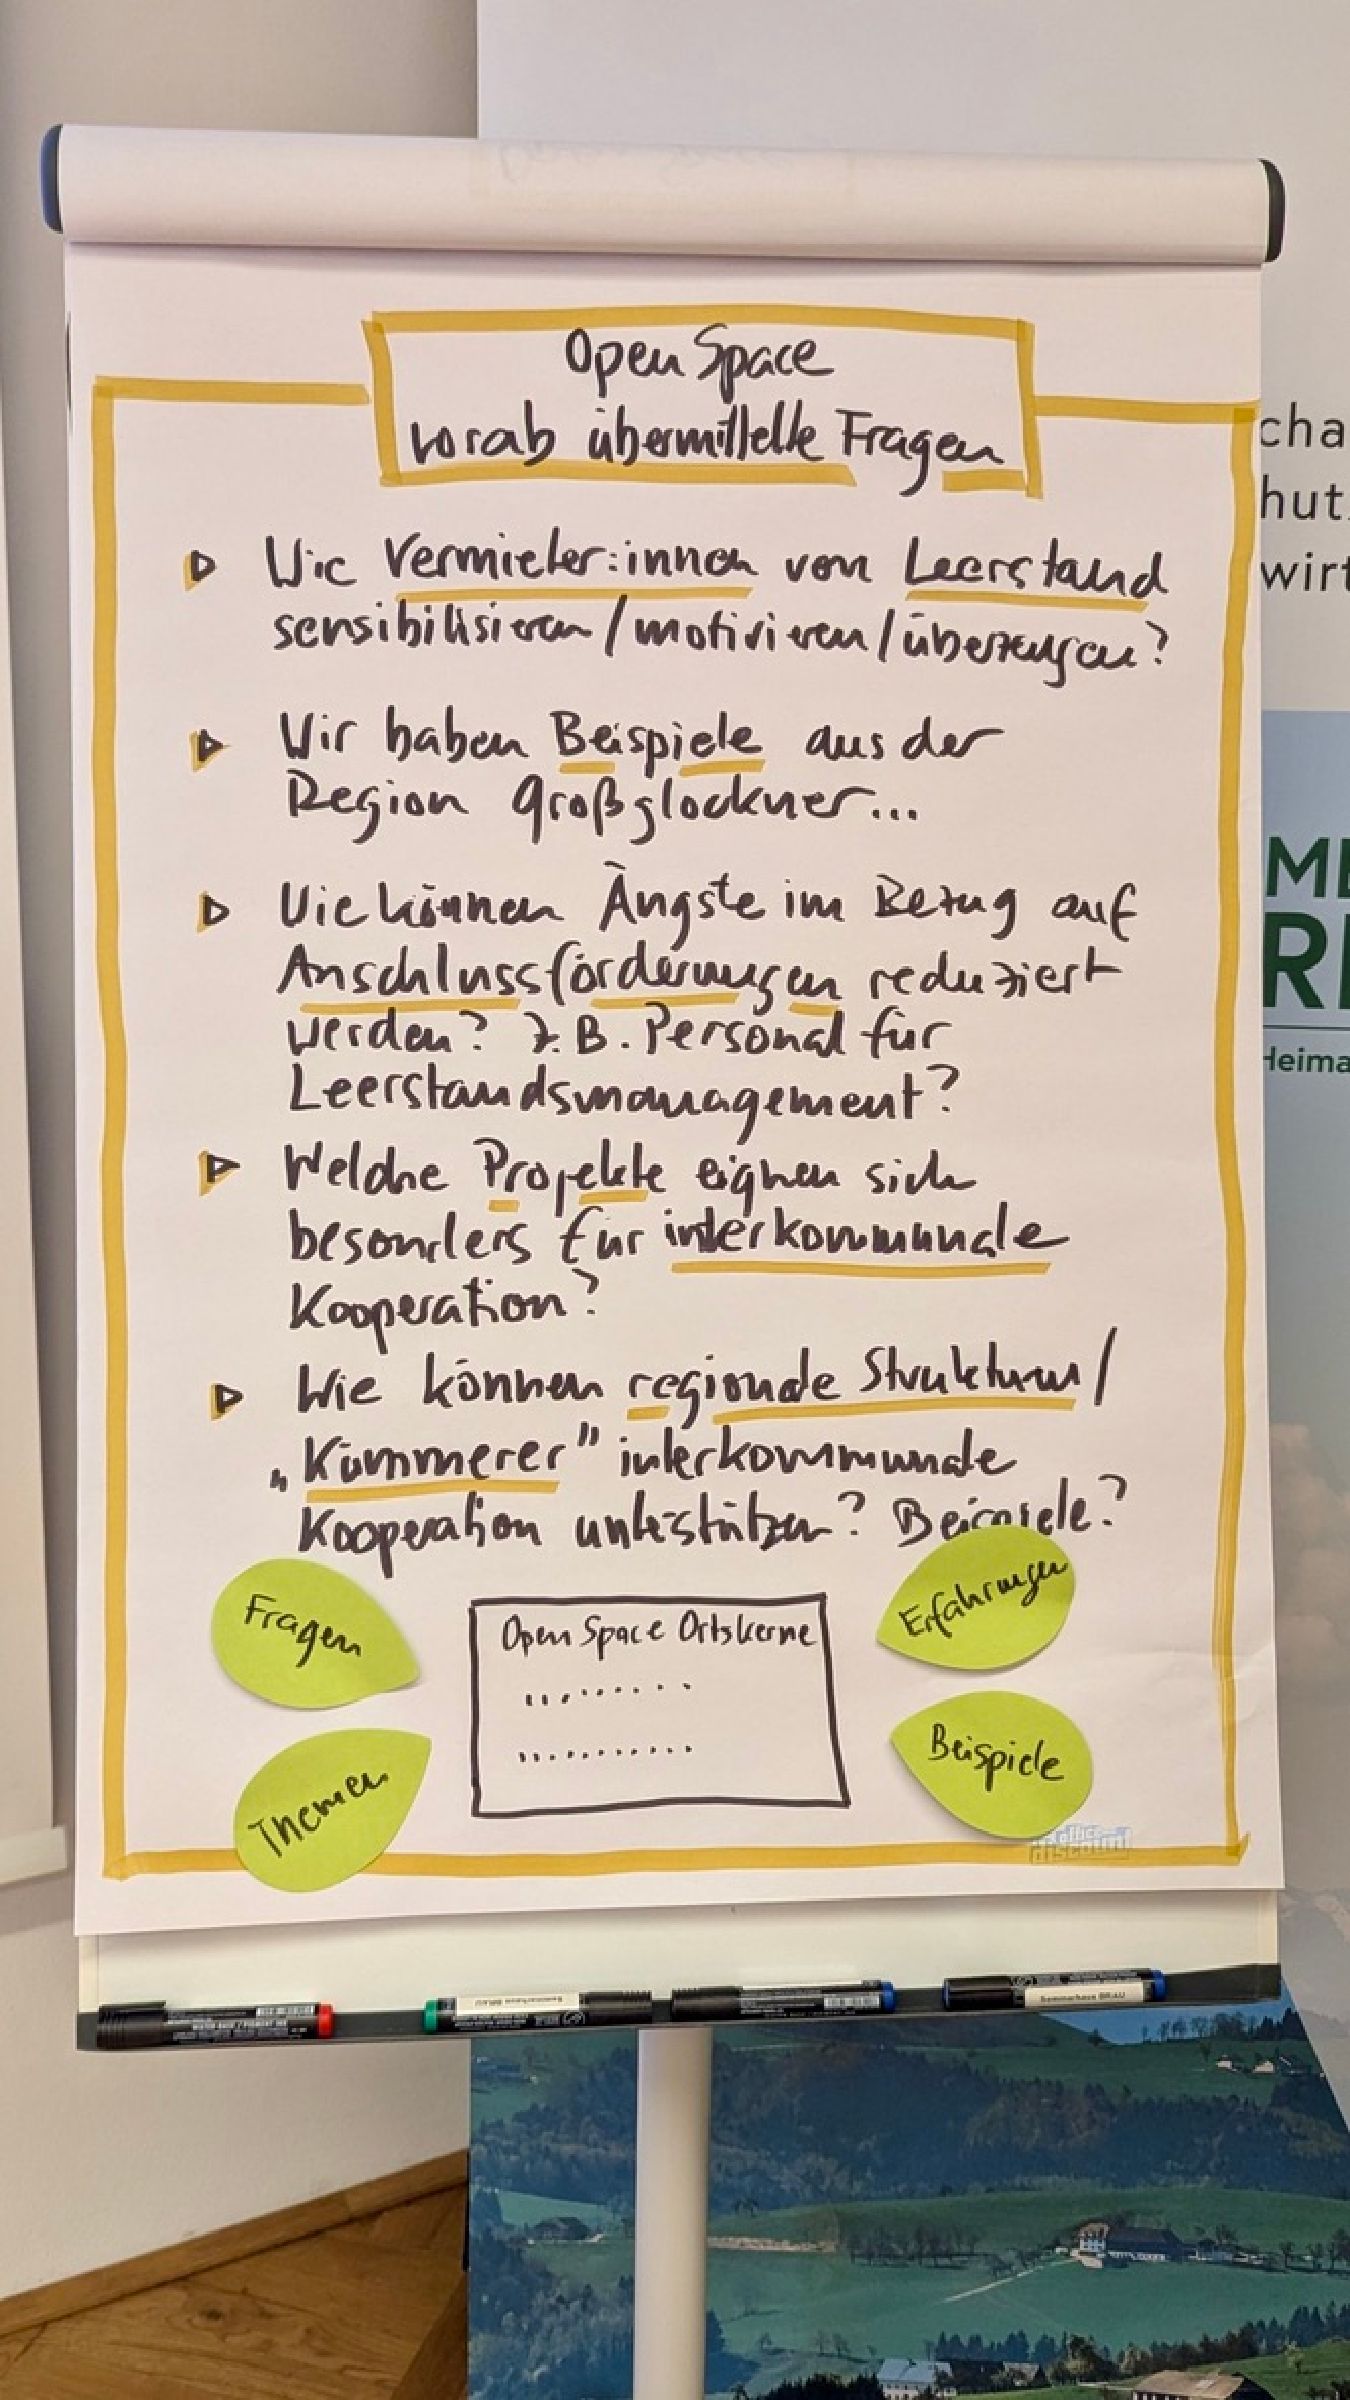 Open Space
vorab übermittelte Fragen
Wie Vermieter:innen von Leerstand
sensibilisieren/motivieren/überzeugen?
Wir haben Beispiele aus der
Region Großglockner...
Wie können Ängste im Bezug auf
Anschlussförderungen reduziert
werden? z.B. Personal für
Leerstandsmanagement?
Welche Projekte eignen sich
besonders für interkommunale
Kooperation?
Wie können regionale Strukturen/
„Kümmerer" interkommunale
Kooperation unterstützen? Beispiele?
Fragen
Erfahrungen
Open Space Ortskerne
Themen
Beispiele
discount
cha
hut
wirt
ME
RE
Heima
Sommerhaus BRAU
Sommerhaus BRAU